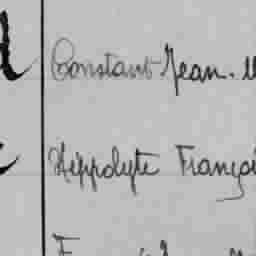 Constant Jean. M
Hippolyte Françoi